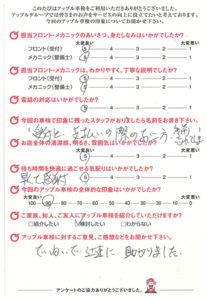 このたびはアップル車検をご利用いただきありがとうございました。
アップルグループでは皆さまのお声をサービスの向上に役立てたいと考えております。
今回のアップル車検の印象についてお聞かせ下さい。
担当フロント・メカニックのあいさつ、身だしなみはいかがでしたか?
大変良い 大変悪い
フロント(受付) 5 4 3 2 1
メカニック(整備士) 5 4 3 2 1
担当フロント・メカニックは、わかりやすく、丁寧な説明でしたか?
フロント(受付) 5 4 3 2 1
メカニック(整備士) 5 4 3 2 1
電話の対応はいかがでしたか?
5 4 3 2 1
今回の車検で印象に残ったスタッフがおりましたら名前をお書き下さい。
お店全体の清潔感、明るさ、雰囲気はいかがでしたか?
5 4 3 2 1
待ち時間を快適に過ごせる気配りはいかがでしたか?
5 4 3 2 1
今回のアップル車検の全体的な印象はいかがでしたか?
大変良い 大変悪い
100 90 80 70 60 50 40 30 20 10 0
ご家族、知人、ご友人にアップル車検を紹介していただけますか?
□紹介したい □検討したい □わからない
アップル車検に対するご意見、ご感想などをお聞かせ下さい。
助かりました。
アンケートのご協力ありがとうございました。